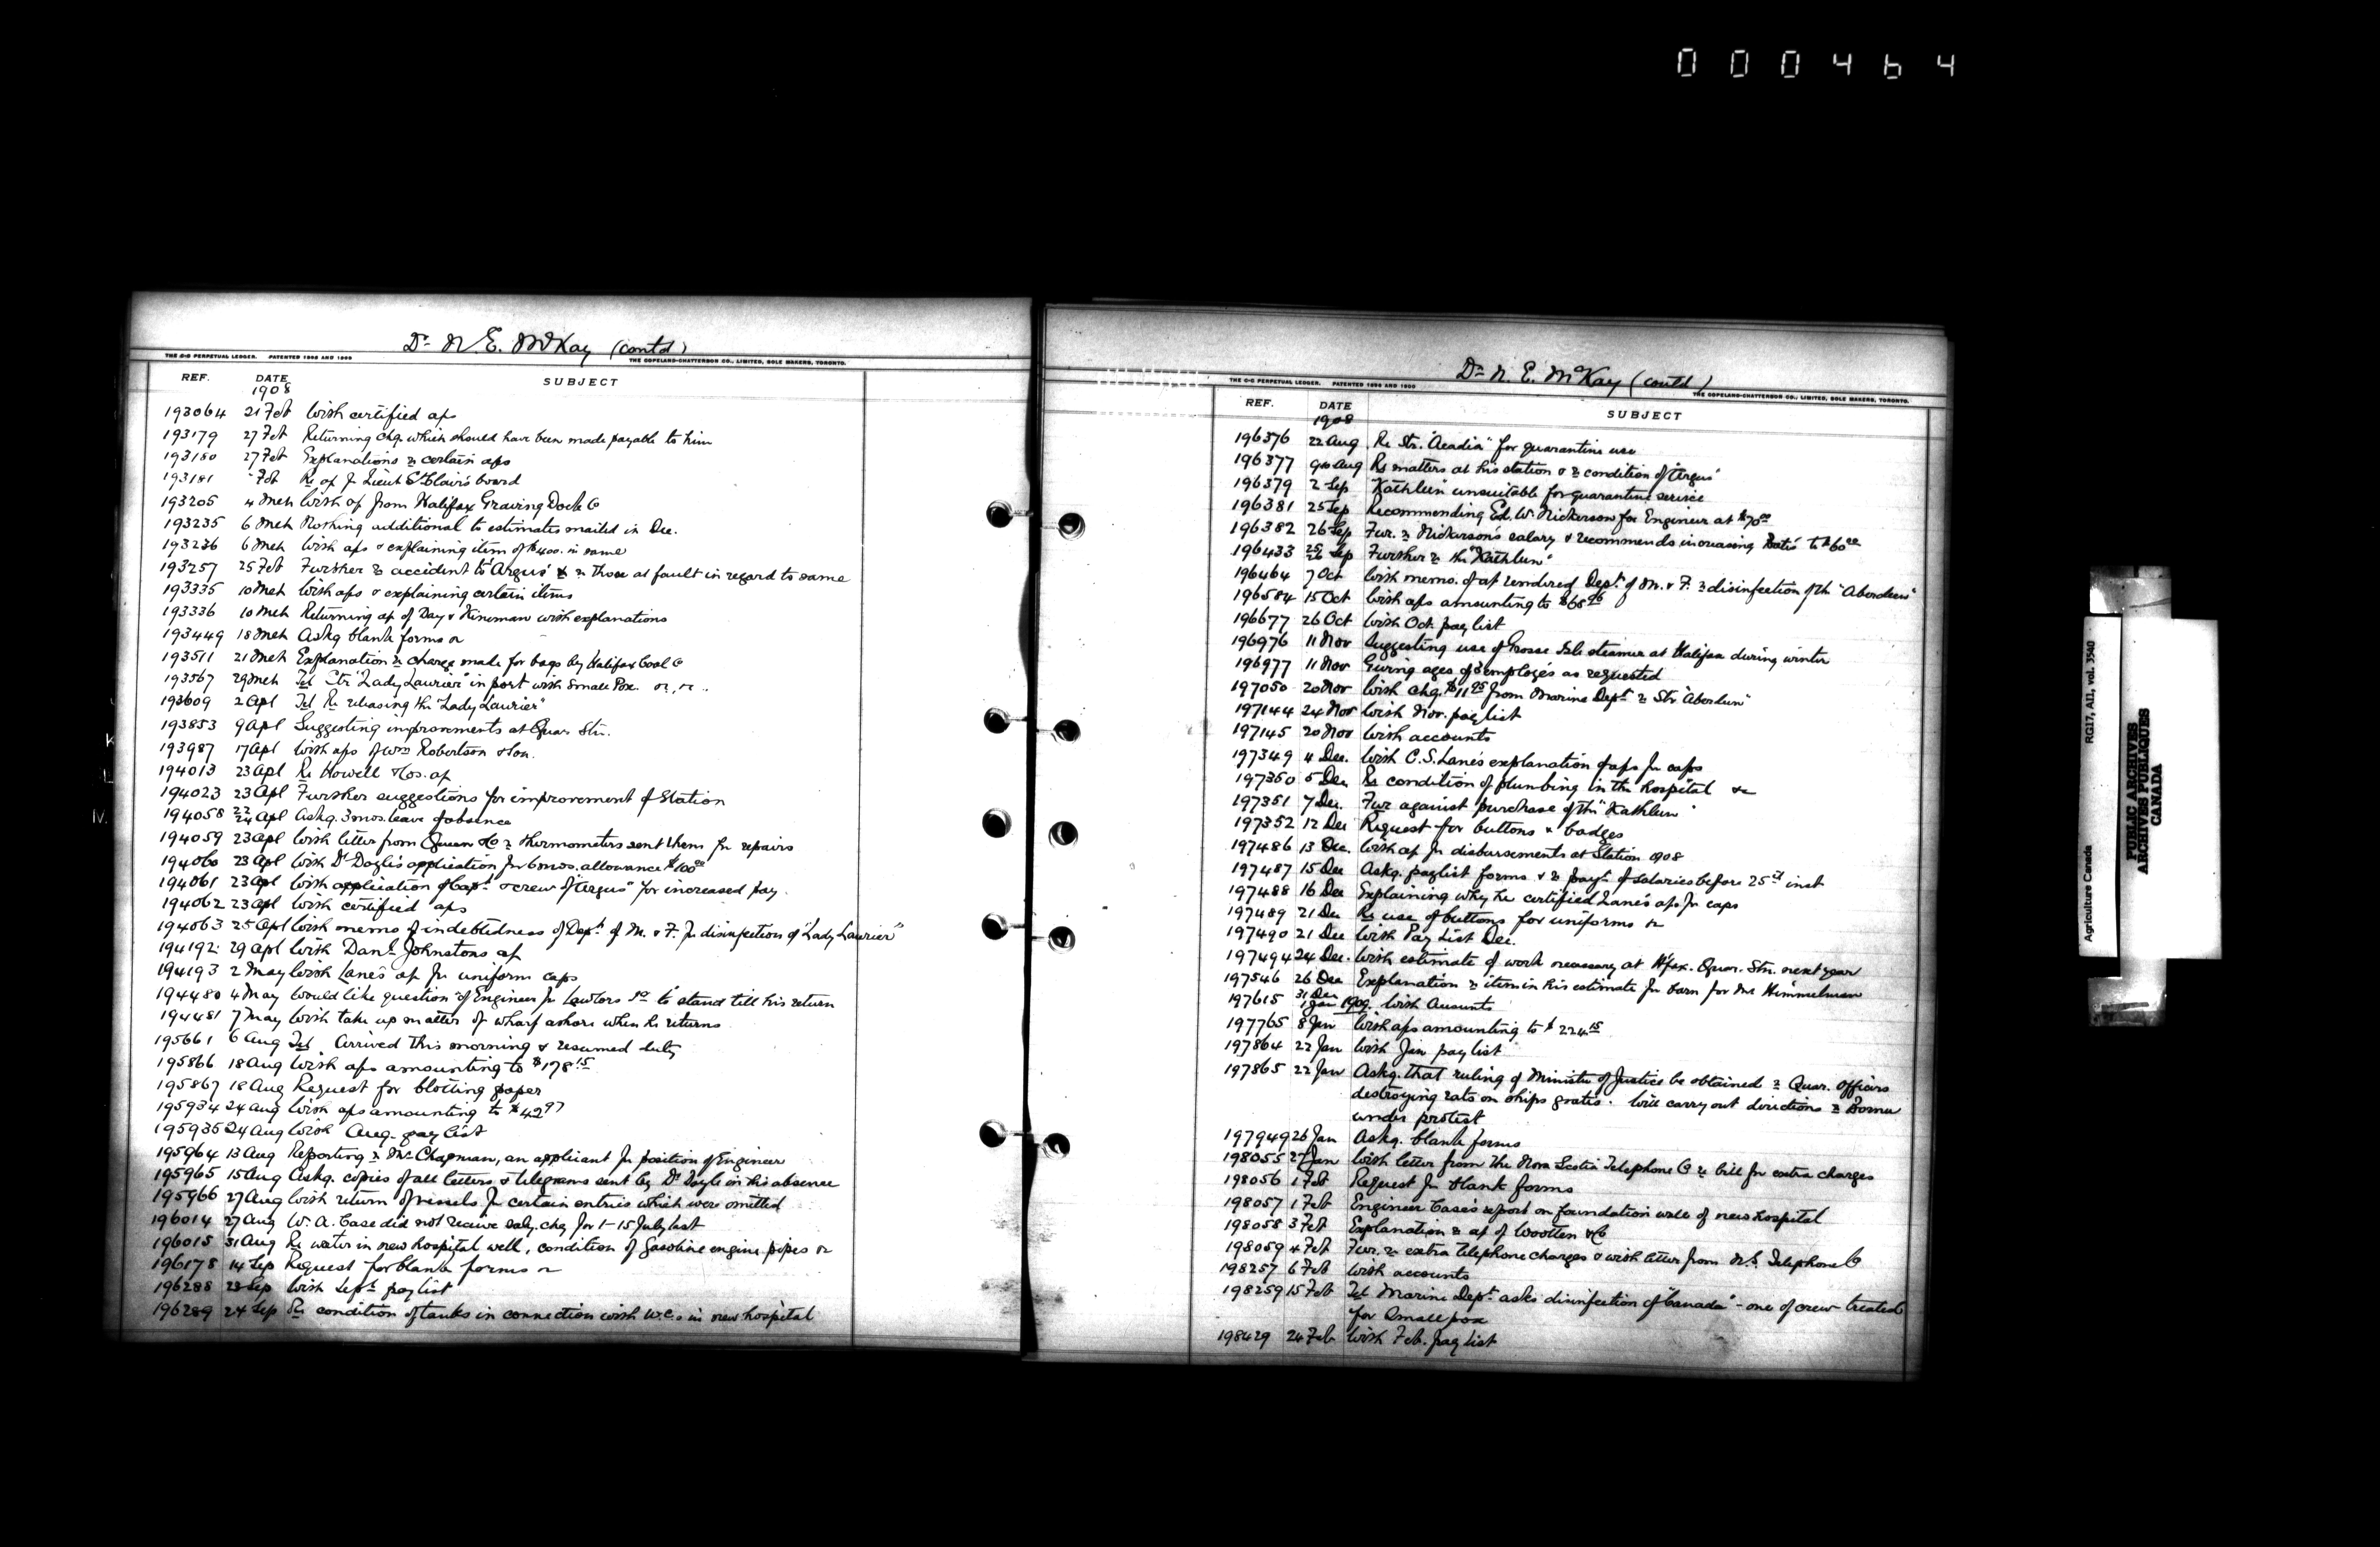 000464
Dr N. E. McKay (contd)
THE C-C PERPETUAL LEDGER. PATENTED 1898 AND 1900 THE COPELAND-CHATTERSON CO., LIMITED, SOLE MAKERS, TORONTO.
REF. DATE SUBJECT
1908
193064 21 Feb With certified a/cs
193179 27 Feb Returning chq. which should have been made payable to him
193180 27 Feb Explanations re certain a/cs
193181 " Feb Re a/c for Lieut St Clair's board
193205 4 Mch With a/c from Halifax Graving Dock Co
193235 6 Mch Nothing additional to estimates mailed in Dec.
193236 6 Mch With a/cs & explaining item of $400. in same
193257 25 Feb Further re accident to "Argus" & re those at fault in regard to same
193335 10 Mch With a/cs & explaining certain items
193336 10 Mch Returning a/c of Day & Kinsman with explanations
193449 18 Mch Askg blank forms
193511 21 Mch Explanation re charge made for bags by Halifax Coal Co
193567 29 Mch Tel Str "Lady Laurier" in port with Small Pox.
193609 2 Apl Tel Re releasing the "Lady Laurier"
193853 9 Apl Suggesting improvements at Quar. Stn.
193987 17 Apl With a/cs of Wm Robertson & Son.
194013 23 Apl Re Howell & Co's. a/c
194023 23 Apl Further suggestions for improvement of Station
194058 22/24 Apl Askg. 3 mos. leave of absence
194059 23 Apl With letter from Queen & Co re thermometers sent them for repairs
194060 23 Apl With Dr Doyle's application for 6 mos. allowance $100.00
194061 23 Apl With application of Capt. & crew of "Argus" for increased pay
194062 23 Apl With certified a/cs
194063 25 Apl With memo of indebtedness of Dept. of M. & F. for disinfection of "Lady Laurier"
194192 29 Apl With Danl. Johnstons a/c
194193 2 May With Lane's a/c for uniform caps
194480 4 May Would like question of Engineer for Lawlors Id to stand till his return
194481 7 May With take up matter of wharf ashore when he returns
195661 6 Aug Tel Arrived this morning & resumed duty
195866 18 Aug With a/cs amounting to $178.15
195867 18 Aug Request for blotting paper
195934 24 Aug With a/cs amounting to $42.97
195935 24 Aug With Aug. pay list
195964 13 Aug Reporting re Mr Chapman, an applicant for position of Engineer
195965 15 Aug Askg. copies of all letters & telegrams sent by Dr Doyle in his absence
195966 27 Aug With return of vessels for certain entries which were omitted
196014 27 Aug W. A. Case did not receive saly. chq for 1-15 July last
196015 31 Aug Re water in new hospital well, condition of Gasoline engine pipes
196178 14 Sep Request for blank forms
196288 23 Sep With Sept. pay list
196289 24 Sep Re condition of tanks in connection with W.C.s in new hospital
Dr N. E. McKay (contd)
THE C-C PERPETUAL LEDGER. PATENTED 1898 AND 1900 THE COPELAND-CHATTERSON CO., LIMITED, SOLE MAKERS, TORONTO.
REF. DATE SUBJECT
1908
196376 22 Aug Re Str. "Acadia" for quarantine use
196377 Aug Re matters at his station & re condition of "Argus"
196379 2 Sep "Kathleen" unsuitable for quarantine service
196381 25 Sep Recommending Ed. W. Nickerson for Engineer at $70.00
196382 26 Sep Fur. re Nickerson's salary & recommends increasing to $60.00
196433 Sep Further re the "Kathleen"
196464 7 Oct With memo. of a/c rendered Dept. of M. & F. re disinfection of the "Aberdeen"
196584 15 Oct With a/cs amounting to $68.96
196677 26 Oct With Oct. pay list
196976 11 Nov Suggesting use of Grosse Isle steamer at Halifax during winter
196977 11 Nov Giving ages of employés as requested
197050 20 Nov With chq. $11.95 from Marine Dept. re Str. "Aberdeen"
197144 24 Nov With Nov. pay list
197145 20 Nov With accounts
197349 4 Dec. With C. S. Lane's explanation of a/cs for caps
197350 5 Dec Re condition of plumbing in the hospital &c
197351 7 Dec. Fur against purchase of the "Kathleen"
197352 12 Dec Request for buttons & badges
197486 13 Dec. With a/c for disbursements at Station 1908
197487 15 Dec Askg. paylist forms & re payt. of salaries before 25th inst
197488 16 Dec Explaining why he certified Lane's a/cs for caps
197489 21 Dec Re use of buttons for uniforms
197490 21 Dec With Pay List Dec.
197494 24 Dec. With estimate of work necessary at H'fax. Quar. Stn. next year
197546 26 Dec Explanation re item in his estimate for barn for Mr Himmelman
197615 31 Dec 1 Jan 1909. With Accounts
197765 8 Jan With a/cs amounting to $224.15
197864 22 Jan With Jan pay list
197865 22 Jan Askg. that ruling of Minister of Justice be obtained re Quar. Officers
destroying rats on ships gratis. Will carry out directions re Bornu
under protest
197949 26 Jan Askg. blank forms
198055 27 Jan With letter from the Nova Scotia Telephone Co re bill for extra charges
198056 1 Feb Request for blank forms
198057 1 Feb Engineer Case's report on foundation wall of new hospital
198058 3 Feb Explanation re a/c of Wootten & Co
198059 4 Feb Fur. re extra telephone charges & with letter from N.S. Telephone Co
198257 6 Feb With accounts
198259 15 Feb Tel Marine Dept. asks disinfection of "Canada" - one of crew treated
for Small pox
198429 24 Feb. With Feb. pay list
Agriculture Canada RG17, AI1, vol. 3540
PUBLIC ARCHIVES
ARCHIVES PUBLIQUES
CANADA